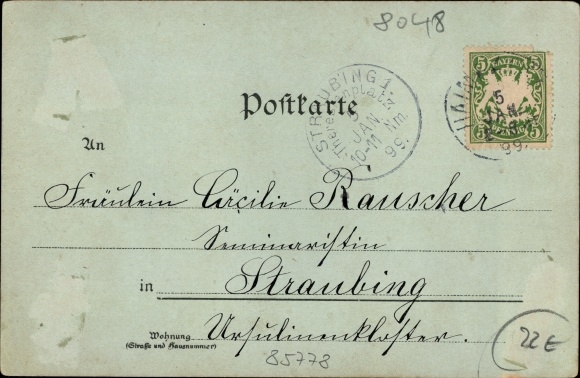 8048
5 BAYERN 5
5 5
5
JAN
99.
STRAUBING 1.
JAN
10-11 Nm.
99.
Postkarte
An
Fräulein Cäcilie Rauscher
Seminaristin
in Straubing
Wohnung
(Straße und Hausnummer)
Ursulinenkloster.
22 E
85778